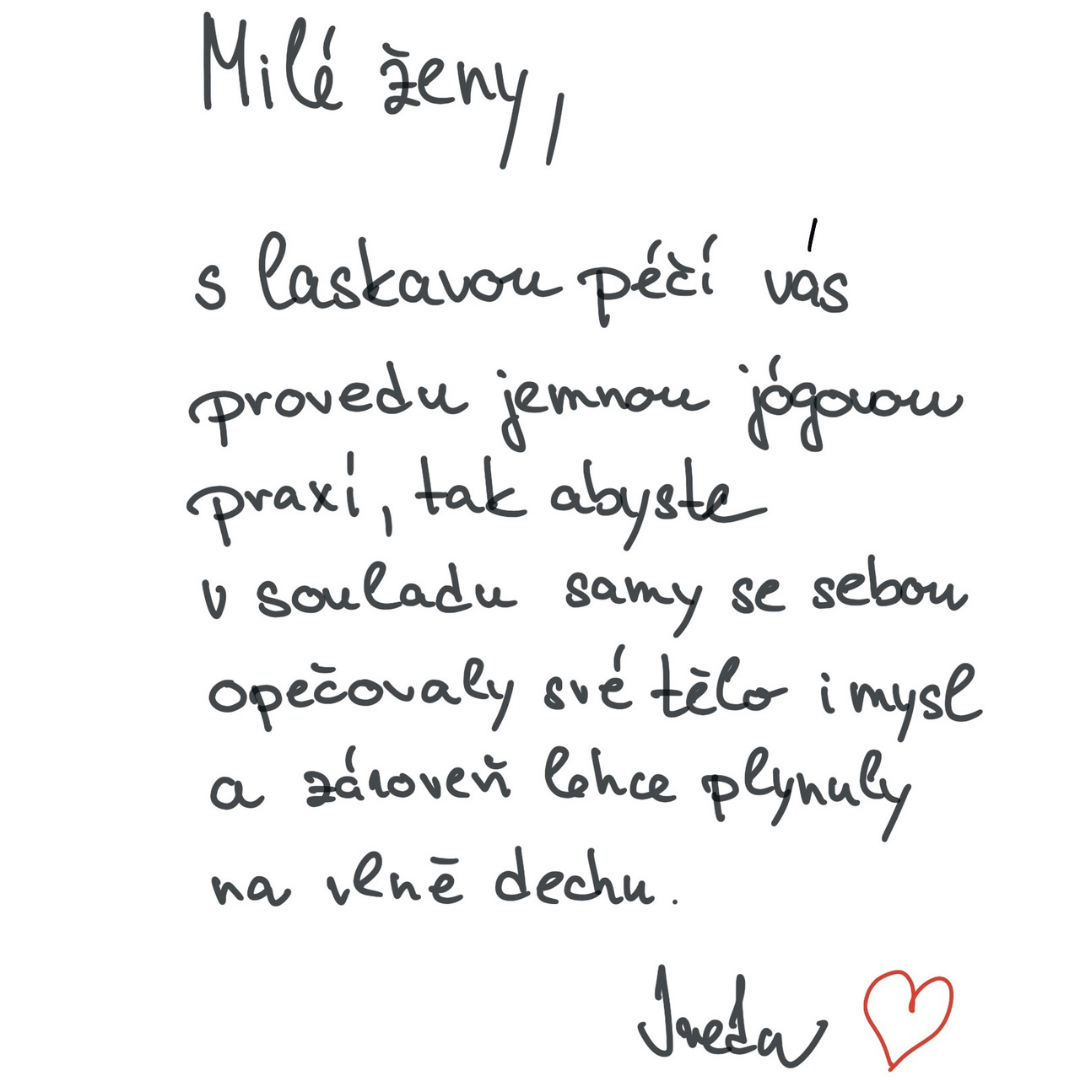 Milé ženy,
s laskavou péčí vás
provedu jemnou jógovou
praxí, tak abyste
v souladu samy se sebou
opečovaly své tělo i mysl
a zároveň lehce plynuly
na vlně dechu.
Iveta